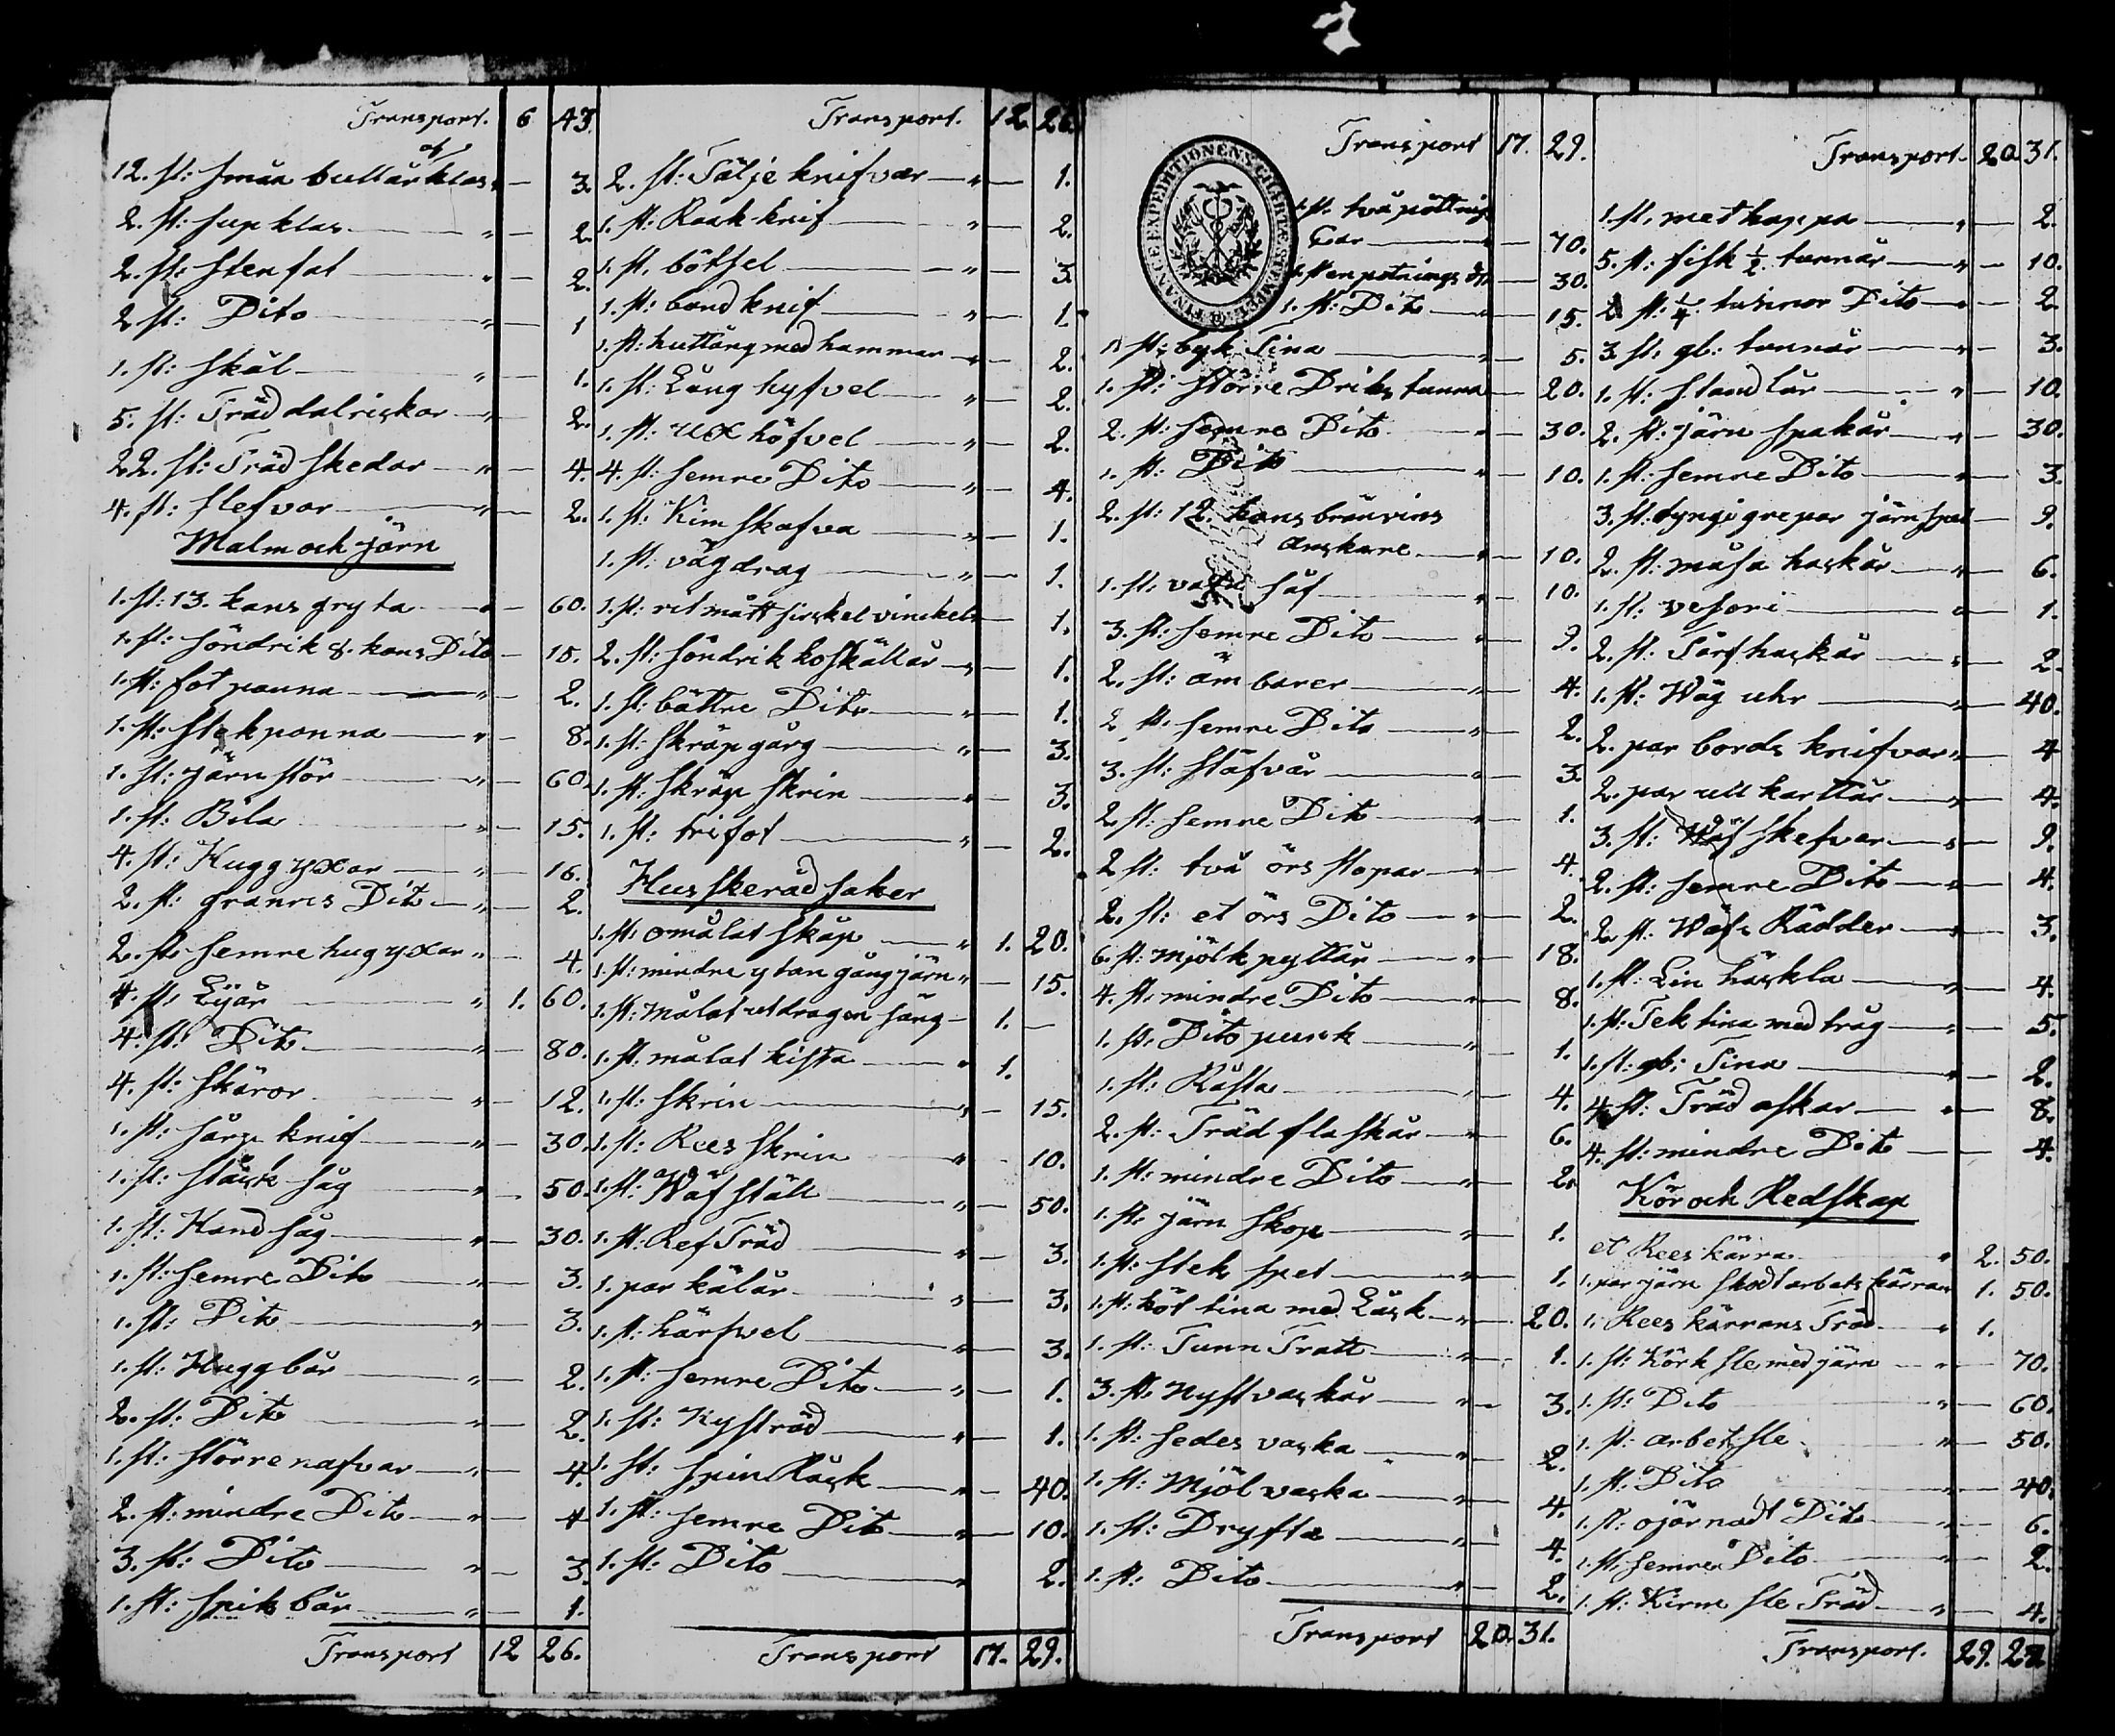 Transport. 6 43.
12. st: små buttär klas — 3.
2. st: sup klas " — 2.
2. st: sten fat " — 2.
2 st: Dito " — 1
1. st: skål " — 1.
5. st: Träd dalriskar " — 2.
22. st: Träd skedar " — 4.
4. st: slefvar " — 2.
Malm och järn
1. st: 13. kans gryta " — 60.
1. st: söndrik 8. kans Dito — 15.
1. st: fot panna " — 2.
1. st: stekpanna " — 8.
1. st: järn stör " — 60.
1. st: Bila " — 15.
4. st: Hugg yxar " — 16.
2. st: granris Dito " — 2.
2. st: semre hug yxar " — 4.
4. st: Lijär " 1. 60.
4. st: Dito " — 80.
4. st: skäror " — 12.
1. st: sårg knif " — 30.
1. st: stäck såg " — 50.
1. st: Hand såg " — 30.
1. st: semre Dito " — 3.
1. st: Dito " — 3.
1. st: Huggbår " — 2.
2. st: Dito " — 2.
1. st: större nafvar " — 4.
2. st: mindre Dito " — 4
3. st: Dito " — 3.
1. st: spik bår " — 1.
Transport 12 26.
Transport. 12 26.
2. st: Tälje knifvar " — 1.
1. st: Raak knif " — 2.
1. st. bötsel " — 3.
1. st: band knif " — 1.
1. st: huttång med hammar — 2.
1. st: Lång hyfvel " — 2.
1. st: ux höfvel " — 2.
4. st: semre Dito " — 4.
1. st: Kim skafva " — 1.
1. st: vägdrag " — 1.
1. st: ritmått sirkel vinckel — 1.
2. st: söndrik koskällär " — 1.
1. st: bättre Dito " — 1.
1. st: skräp gårg " — 3.
1. st: skräp skrin " — 3.
1. st: trifot " — 2.
Husskeråd saker
1. st: omålat skåp " 1. 20.
1. st: mindre ytan gångjärn " — 15.
1. st: målat utdragen säng — 1. —
1. st. målat kista " 1.
1. st: skrin " — 15.
1. st: Rees skrin " — 10.
1. st: Wäf ställ " — 50.
1. st: Ref Träd " — 3.
1. par kälar " — 3.
1. st: härfvel " — 3.
1. st: semre Dito " — 1.
1. st: Nystråd " — 1.
1. st: spin Råck " — 40.
1. st: semre Dito " — 10.
1. st: Dito " 2.
Transport 17. 29.
FINANCE EXPEDITIONENS CHARTÆ STEMPEL
Transport 17. 29.
1. st. två pöttnig
Car " — 70.
1. st en potnings Dto — 30.
1. st: Dito " — 15.
1. st: byk Tina " — 5.
1. st: större Driks tunna — 20.
2. st: semre Dito — 30.
1. st: Dito " — 10.
2. st: 12. kans bränvins
anskare " — 10.
1. st: vatn såf " — 10.
3. st: semre Dito " — 9.
2. st: ämbarer " — 4.
2 st. semre Dito " — 2.
3. st: stäfvär " — 3.
2 st: semre Dito " — 1.
2 st: två örs stopar " — 4.
2. st: et örs Dito " — 2.
6. st: mjölk pyttär " — 18.
4. st. mindre Dito " — 8.
1. st. Dito punk " — 1.
1. st: Kåsta " — 4.
2. st: Träd flaskår " — 6.
1. st: mindre Dito " — 2.
1. st: järn skop " — 1.
1. st: stek spet " — 1.
1. st: köt tina med Låck " — 20.
1. st: Tunn Tratt " — 1.
3. st. nystvaskår " — 3.
1. st: sedes vaska " — 2.
1. st: Mjöl vaska " — 4.
1. st: Dryfta " — 4.
1. st: Dito " — 2.
Transport 20. 31.
Transport. 20 31.
1. st. met kappa " 2.
5. st: fisk ½ tunnår " — 10.
2 st: ¼ tunnor Dito " — 2
3. st. gl: tunnår " — 3.
1. st: standlår " — 10.
2. st: järn spakår " — 30.
1. st: semre Dito " — 3.
3. st: dyngigrepar järn spet — 9.
2. st: måsa hackår " — 6.
1. st: vesori " 1.
2. st: Tårfhackår " — 2.
1. st: Wäg uhr " — 40.
2. par bords knifvar " — 4
2. par ull karttår " — 4.
3. st: Wäf skefvar " — 9.
2. st: semre Dito " — 4.
2. st. Wäfs Rädder " — 3.
1. st: Lin häckla " — 4.
1. st: Tek tina med tråg " — 5.
1. st: gb: Tina " — 2.
4. st: Träd askar " — 8.
4. st: mindre Dito — 4.
Kör och Redskap
et Rees kärra " 2. 50.
1. par järn skodt arbets kärran 1. 50.
1. Rees kärrans Träd " 1.
1. st: Körk sle med järn — 70.
1. st: Dito " — 60.
1. st: arbets sle " — 50.
1. st: Dito " — 40.
1. st: ojärnadt Dito " — 6.
1. st. semre Dito " — 2.
1. st: Kirm sle Träd " — 4.
Transport. 29.